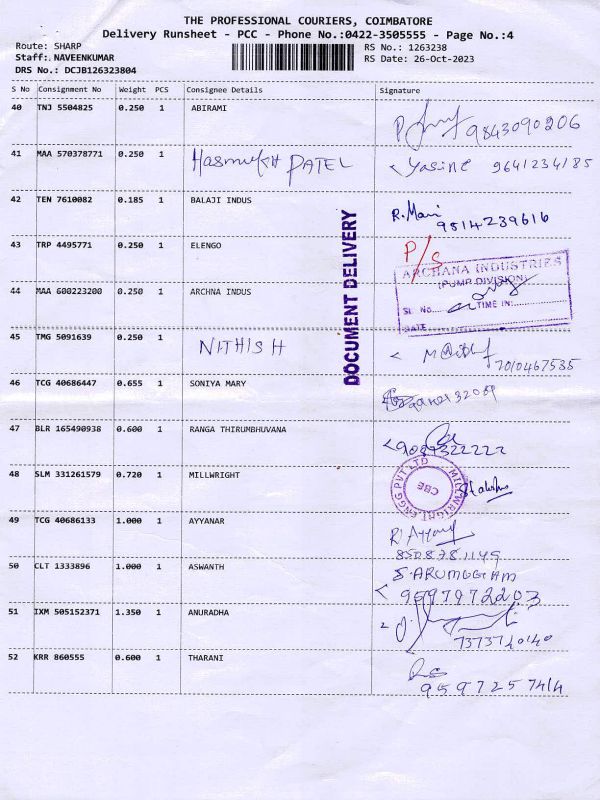 THE PROFESSIONAL COURIERS, COIMBATORE
Delivery Runsheet - PCC - Phone No.:0422-3505555 - Page No.:4
Route: SHARP
RS No.: 1263238
Staff: NAVEENKUMAR
RS Date: 26-Oct-2023
DRS No.: DCJB126323804
S No Consignment No Weight PCS Consignee Details Signature
40 TNJ 5504825 0.250 1 ABIRAMI
9843090206
41 MAA 570378771 0.250 1 HASMUKH PATEL Yasine 9641234185
42 TEN 7610082 0.185 1 BALAJI INDUS R. Mani
9514239616
43 TRP 4495771 0.250 1 ELENGO P/S
ARCHANA INDUSTRIES
(PUMP DIVISION)
44 MAA 600223200 0.250 1 ARCHNA INDUS
SL No. TIME IN:
DATE
DOCUMENT DELIVERY
45 TMG 5091639 0.250 1 NITHISH
7010467535
46 TCG 40686447 0.655 1 SONIYA MARY
47 BLR 165490938 0.600 1 RANGA THIRUMBHUVANA
48 SLM 331261579 0.720 1 MILLWRIGHT
MILLWRIGHT ENGG PVT LTD
CBE
49 TCG 40686133 1.000 1 AYYANAR
8508781149
50 CLT 1333896 1.000 1 ASWANTH S. ARUMUGAM
9597972203
51 IXM 505152371 1.350 1 ANURADHA
7373710140
52 KRR 860555 0.600 1 THARANI
9597257414